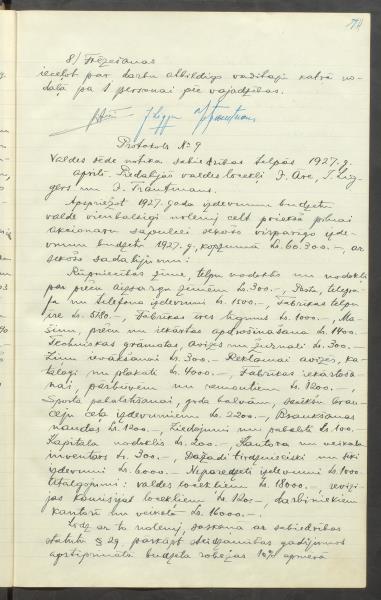 74
8) Frēzēšanas
ieceļot par darbu atbildīgo vadītāju katrā no-
daļā pa 1 personai pēc vajadzības.
Protokols No 9
Valdes sēde notika sabiedrības telpās 1927. g.
aprīlī. Piedalījās valdes locekļi J. Are, J. Lig-
gers un J. Trautmans.
Apspriežot 1927. gada izdevumu budžetu
valde vienbalsīgi nolemj celt priekšā pilnai
akcionāru sapulcei sekošo vispārīgo izde-
vumu budžetu 1927. g. kopsummā Ls. 60.300.–, ar
sekošo sadalījumu:
Rūpniecības zīme, telpu nodoklis un nodokli
par preču aizsargu zīmēm Ls. 300.–, Pasta, telegra-
fa un telefona izdevumi Ls. 1500.–, Fabrikas telpu
īre Ls. 5180.–, Fabrikas īres līgums Ls. 1000.–, Ma-
šīnu, preču un iekārtas apdrošināšana Ls. 1400.
Techniskas grāmatas, avīzes un žurnāli Ls. 300.–
Zīmu ievākšanai Ls. 300.– Reklāmai avīzēs, ka-
talogi un plakati Ls. 4000.–, Fabrikas iekārtoša-
nai, pārbūvēm un remontiem Ls. 1200.–,
Sporta pabalstīšanai, goda balvām,
izdevumiem Ls. 2200.–, Braukšanas
naudas Ls. 1200.–, Ziedojumi un pabalsti Ls. 100.
Kapitāla nodoklis Ls. 200.– Kantora un veikala
inventārs Ls. 300.–, Dažādi tirdznieciski un sīki
izdevumi Ls. 6000.– Neparedzēti izdevumi Ls. 1000.
Atalgojumi: valdes locekļiem Ls. 18000.–, revīzi-
jas komisijas locekļiem Ls. 120.–, darbiniekiem
kantorī un veikalā Ls. 16000.–.
Līdz ar to nolemj, saskaņā ar sabiedrības
statutu § 29 pārkāpt steidzamības gadījumos
apstiprinātā budžeta robežas 10% apmērā